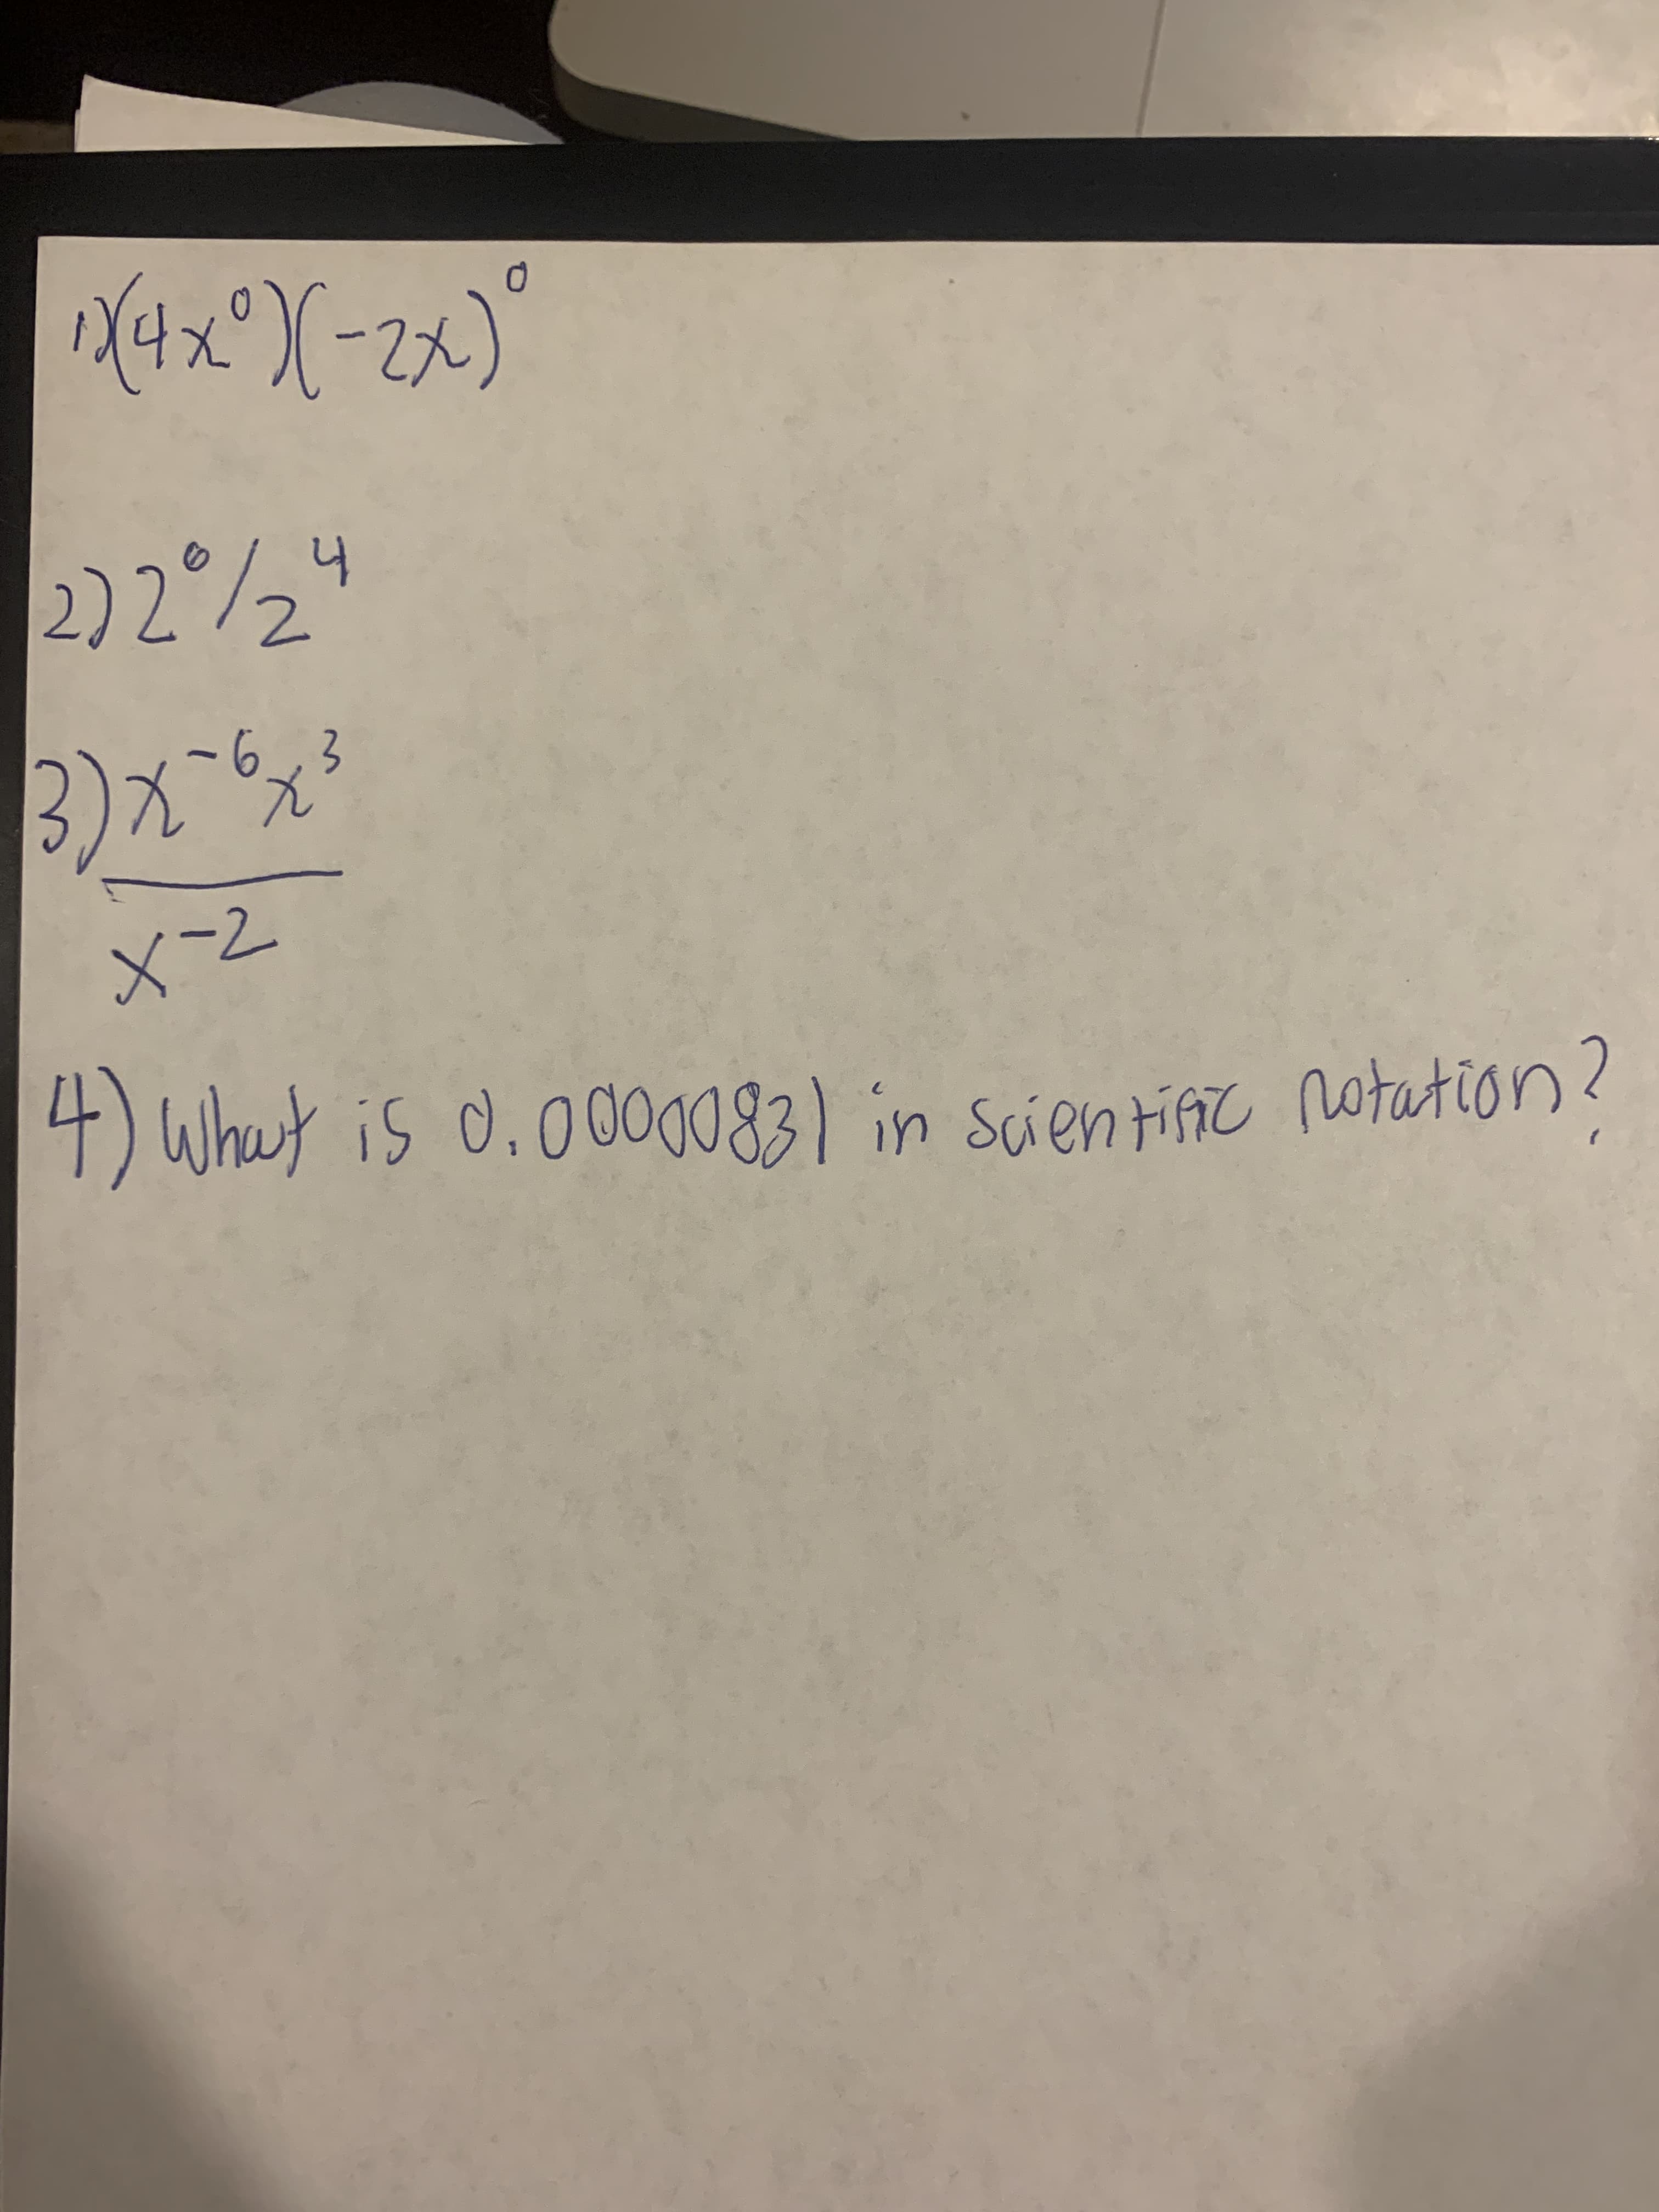 1)(4x⁰)(-2x)⁰
2) 2⁰/2⁴
3) x⁻⁶x³
x⁻²
4) What is 0.00000831 in scientific notation?